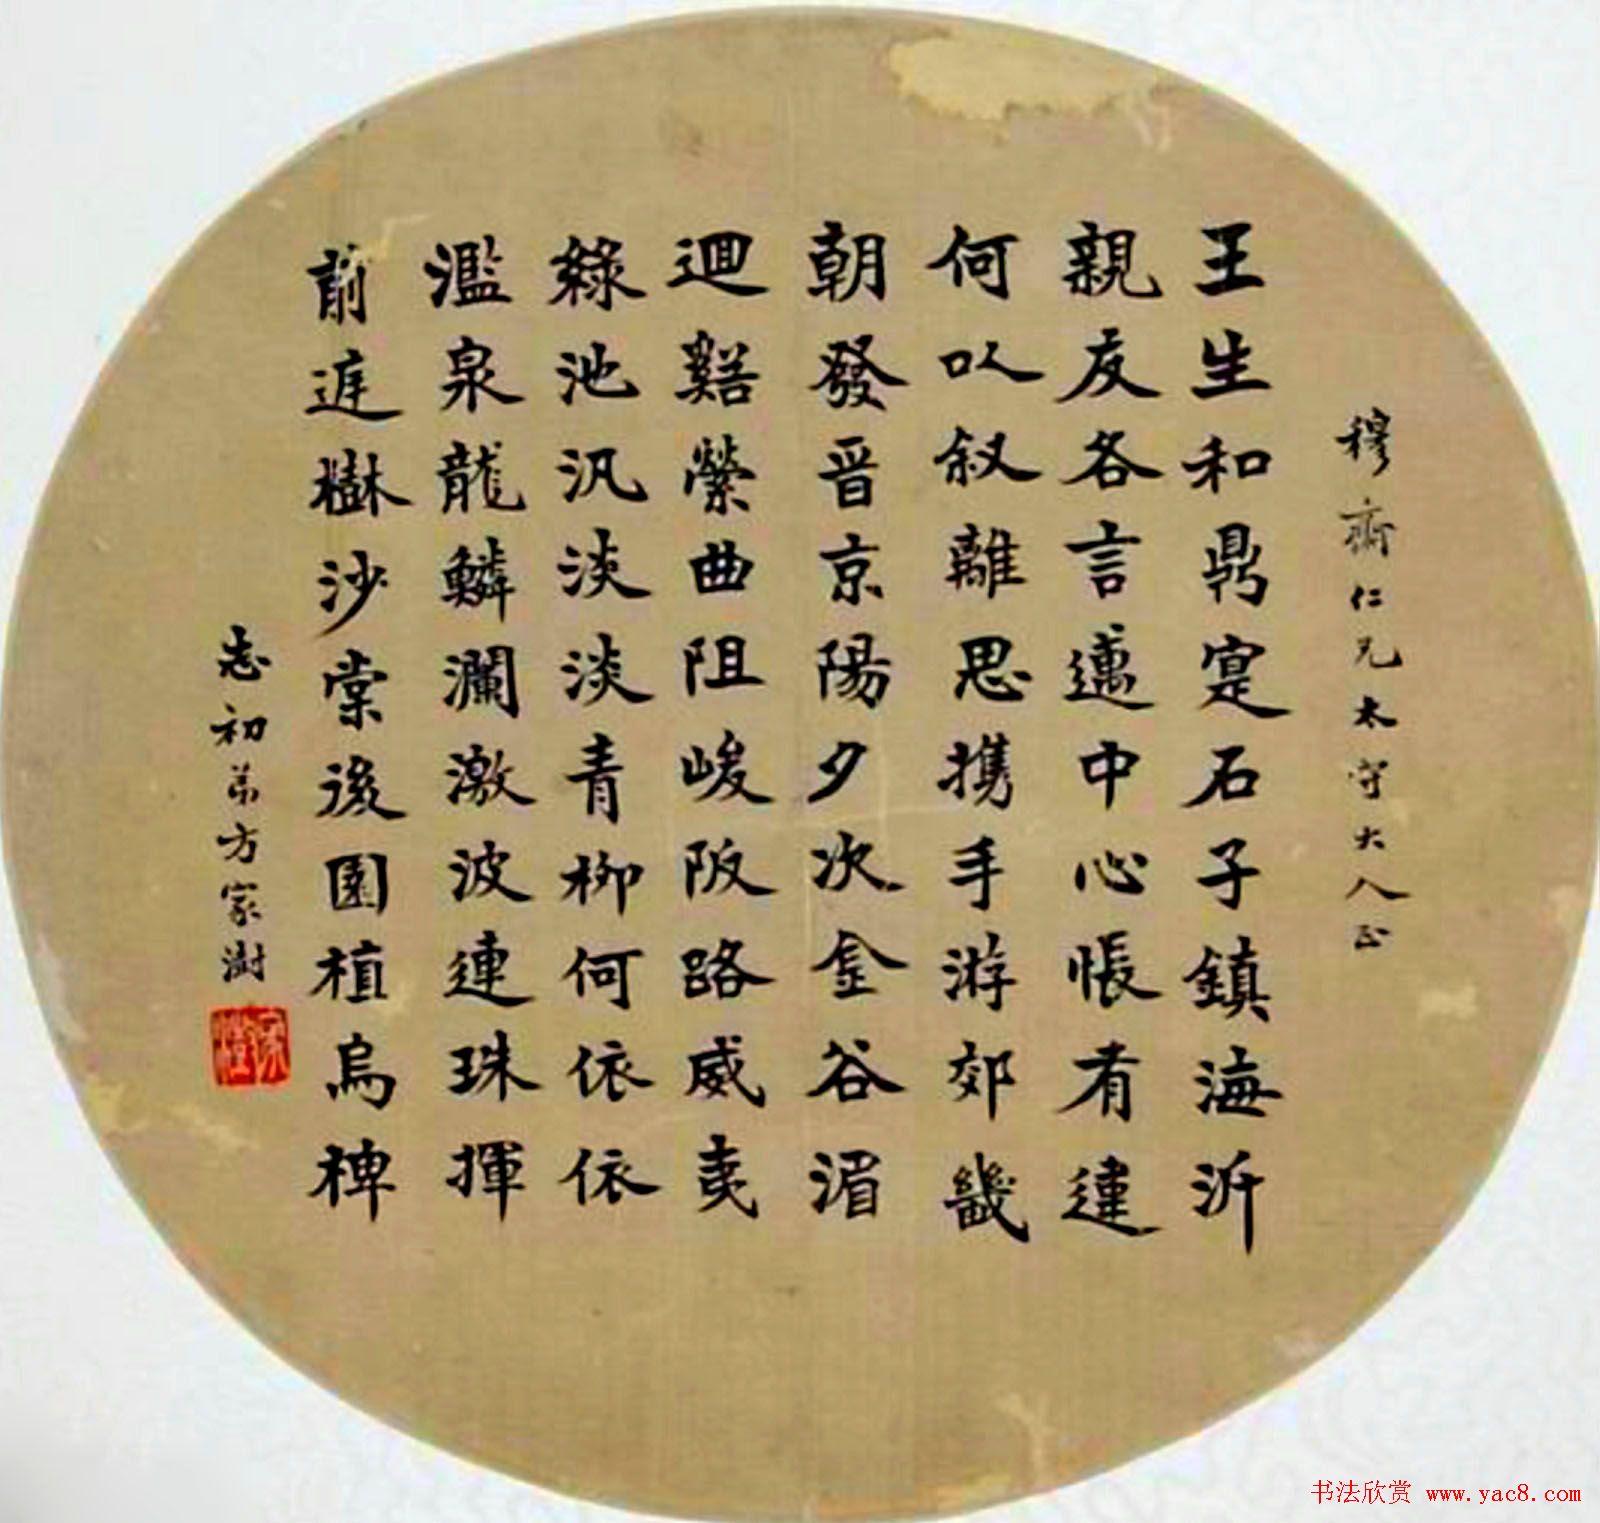 穆齋仁兄太守大人正
王生和鼎寔石子鎮海沂
親友各言邁中心悵有違
何以叙離思攜手游郊畿
朝發晉京陽夕次金谷湄
迴谿縈曲阻峻阪路威夷
綠池汎淡淡青柳何依依
濫泉龍鱗瀾激波連珠揮
前庭樹沙棠後園植烏椑
志初弟方家澍
書法欣赏 www.yac8.com